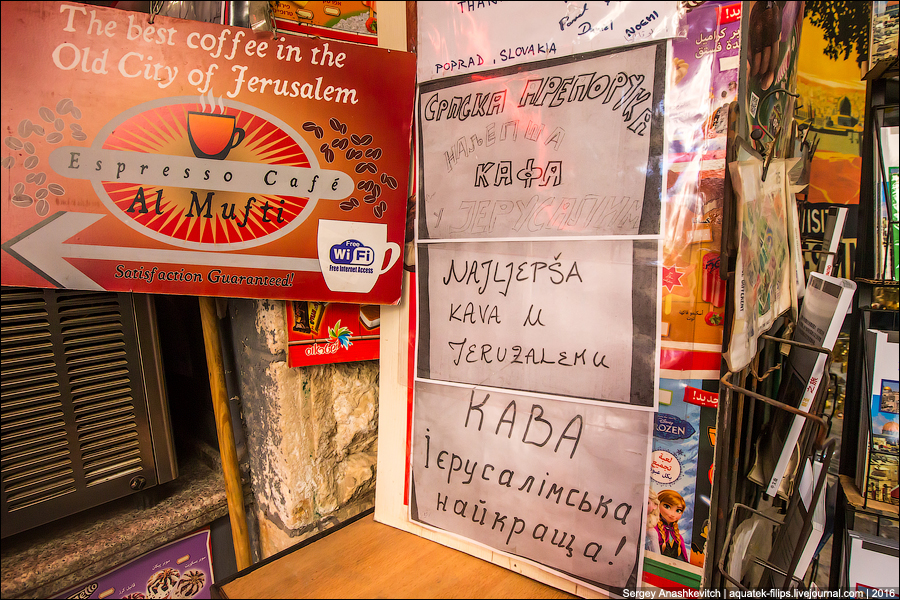 The best coffee in the
Old City of Jerusalem
Espresso Café
Al Mufti
Free
Wi Fi
Free Internet Access
Satisfaction Guaranteed!
POPRAD, SLOVAKIA
NOCHI
СРПСКА ПРЕПОРУКА
НАЈЉЕПША
КАФА
У ЈЕРУСАЛИМ
NAJLJEPŠA
KAVA U
JERUZALEMU
КАВА
Ієрусалімська
найкраща!
FROZEN
جديد!
VISIT
Sergey Anashkevitch | aquatek-filips.livejournal.com | 2016